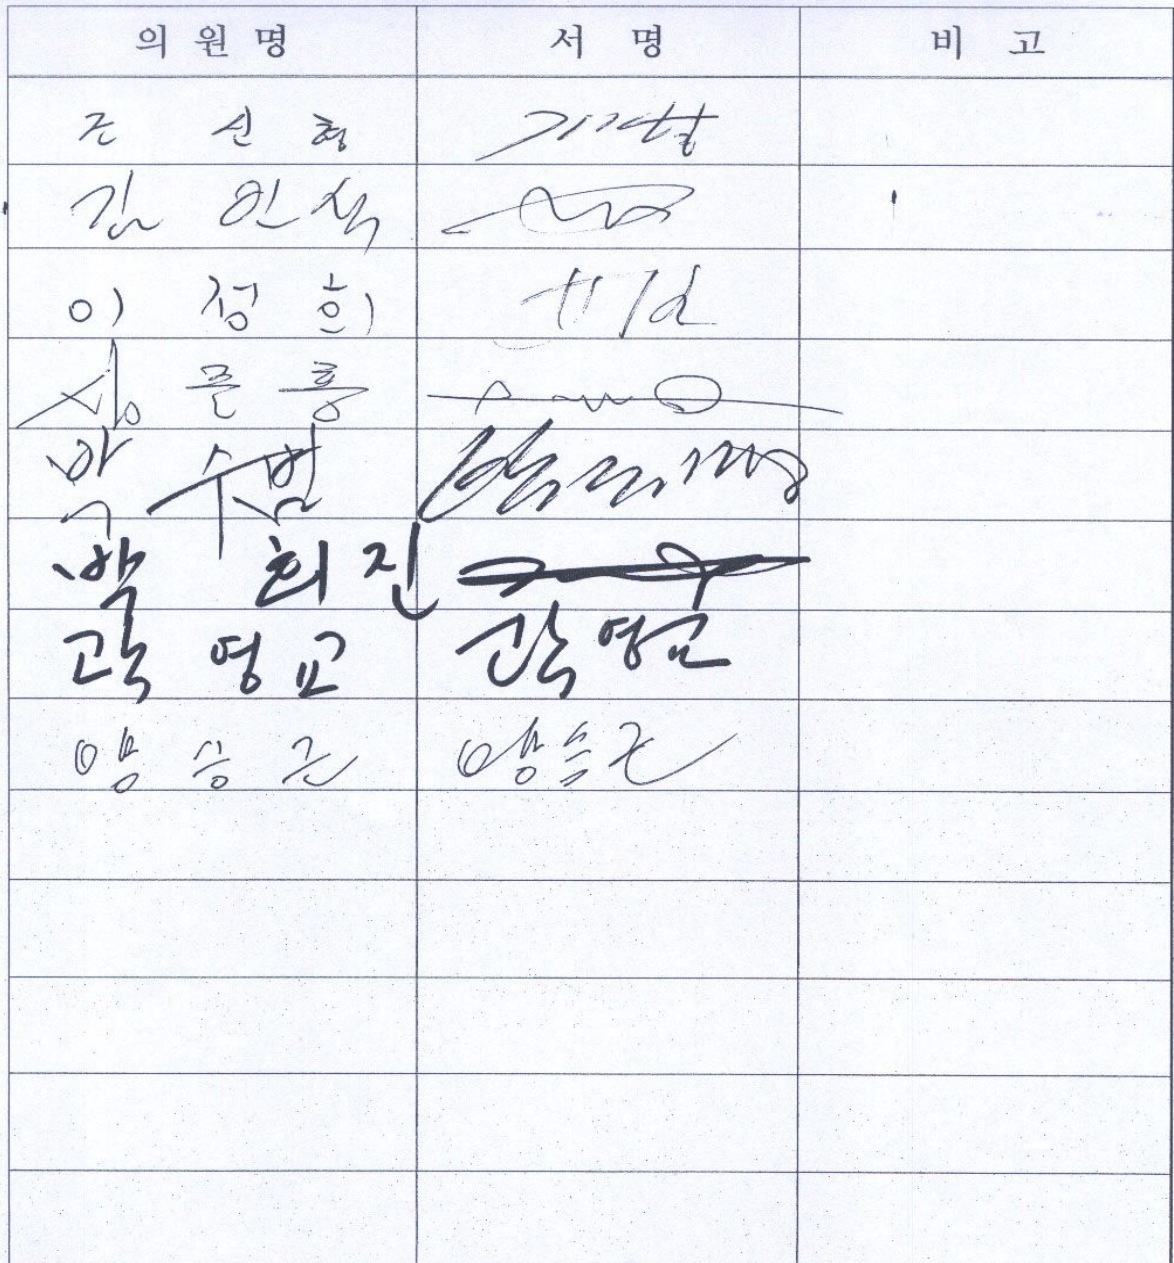 의원명 서명 비고
조 신 형
김 인 식
이 정 희
심 준 홍
박 수범
박 희 진
곽 영 교 곽영교
양 승 근 양승근